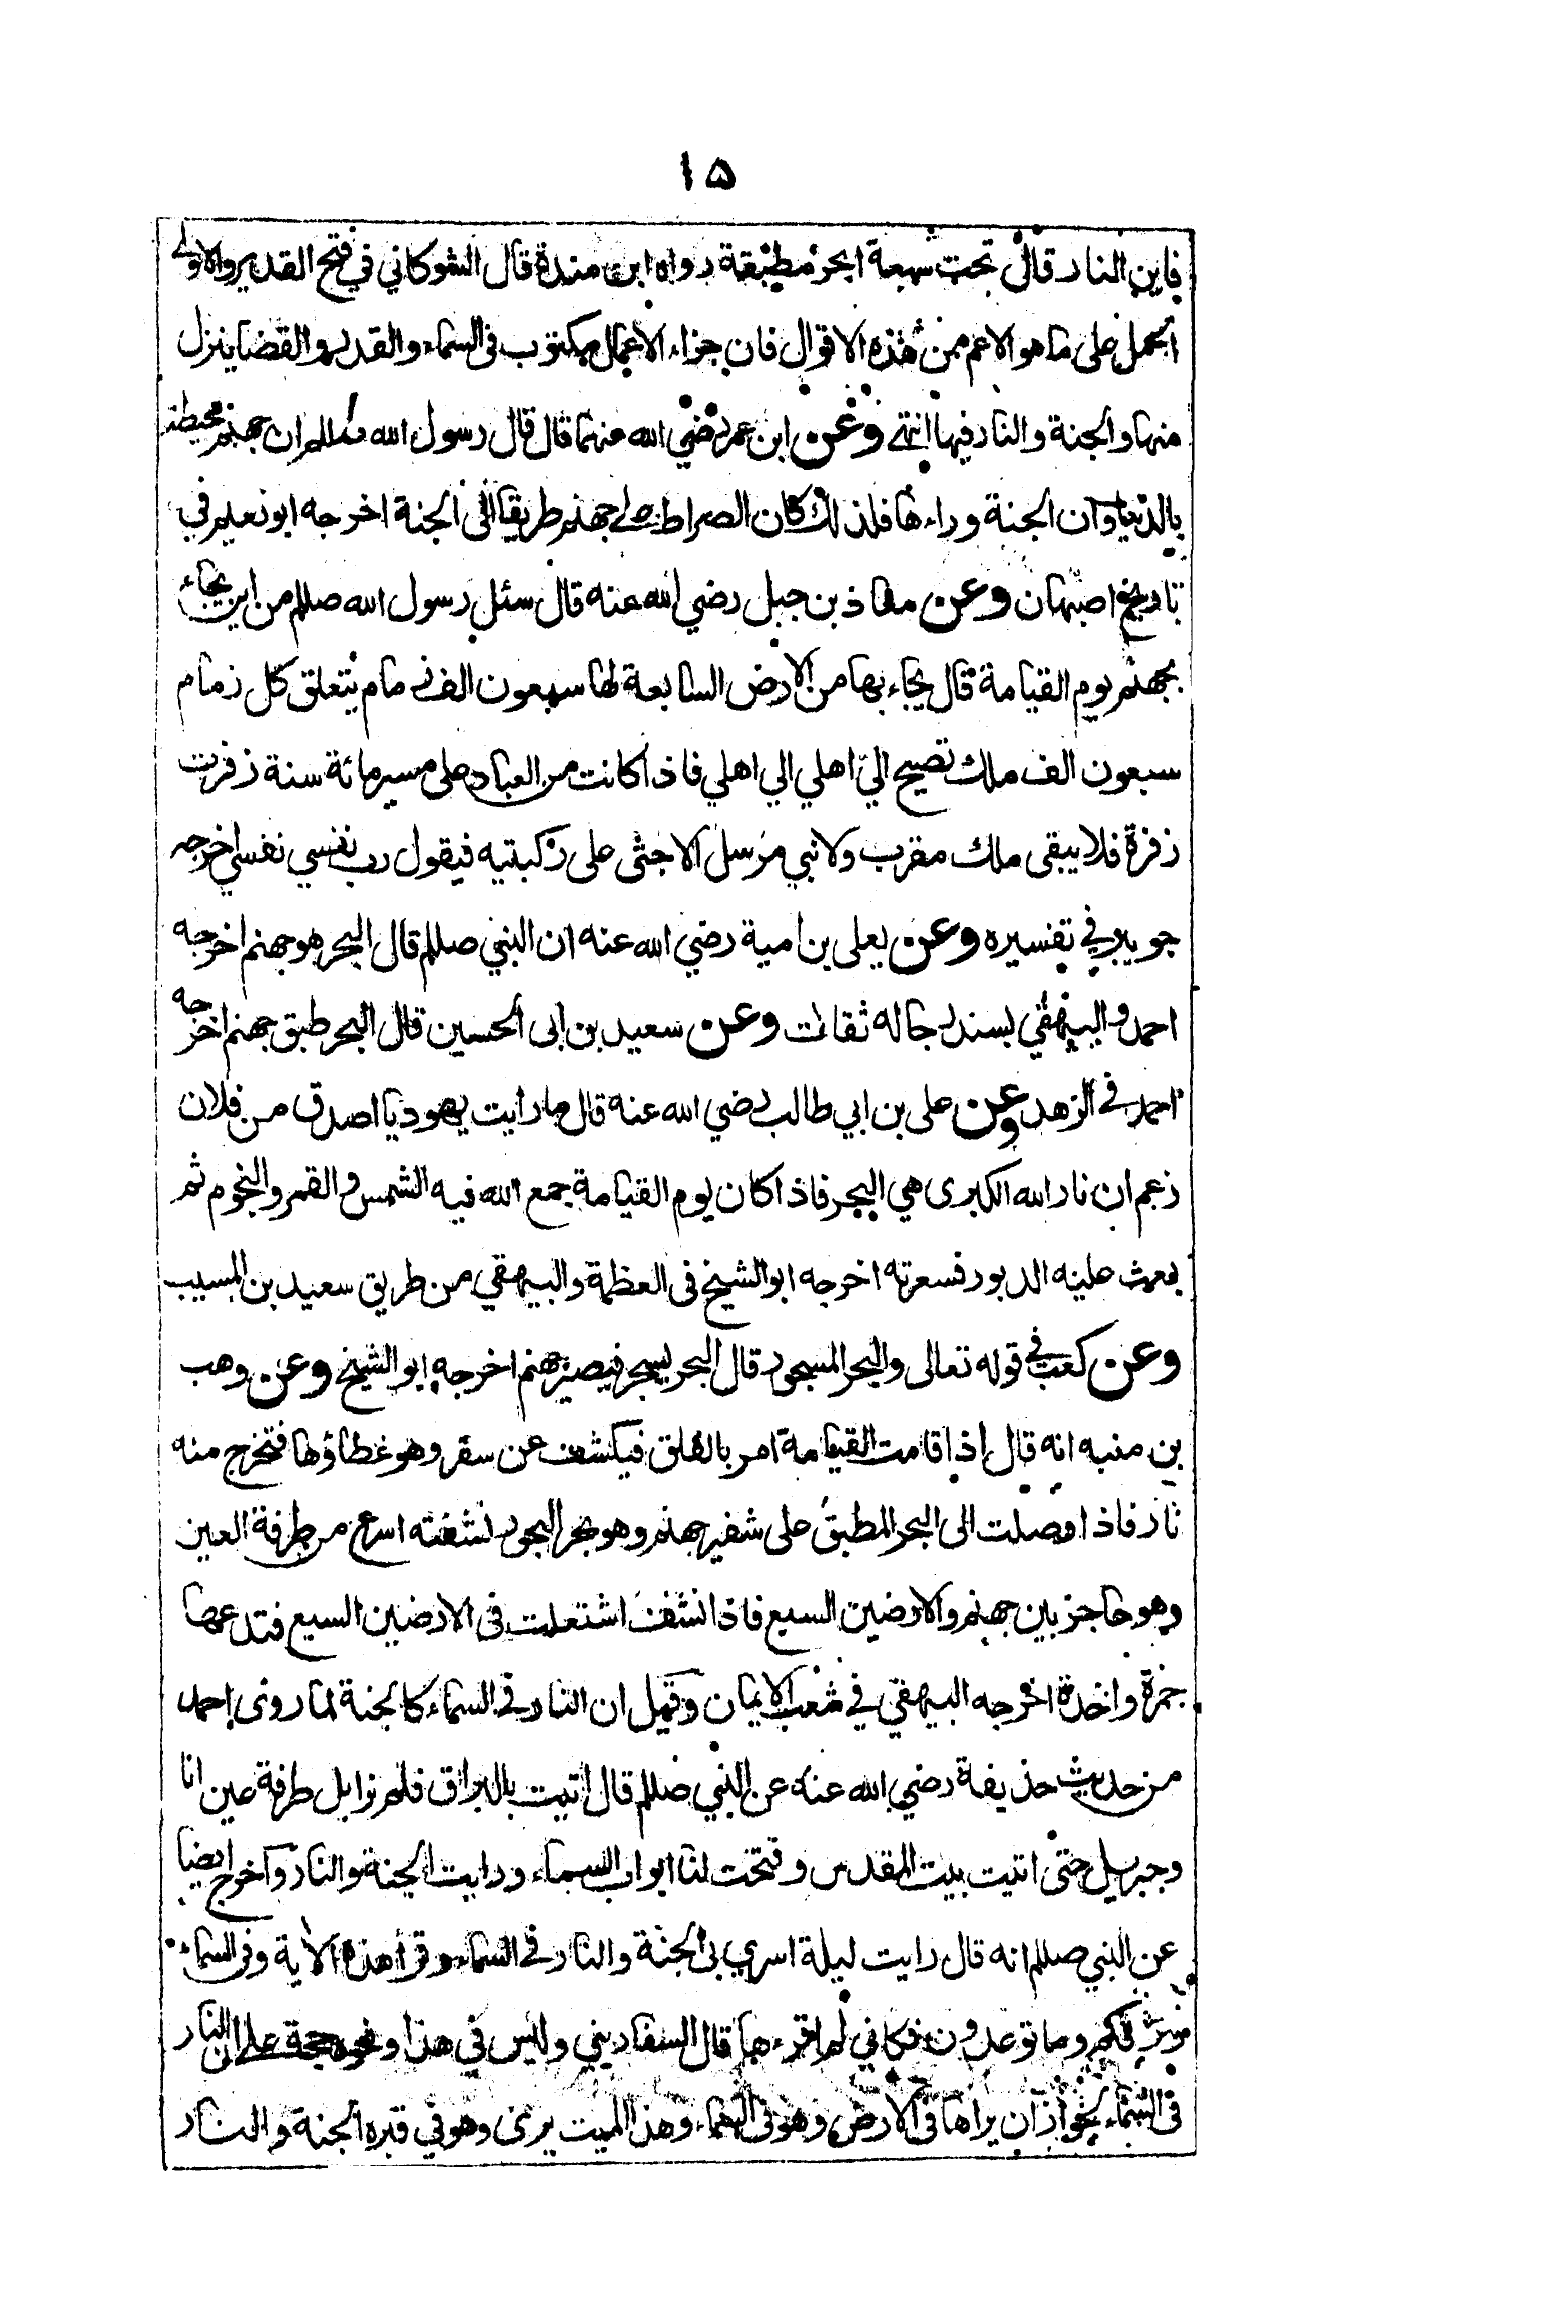 ١٥
فاين النار قال تحت سبعة ابحر مطبقة رواه ابن مندة قال الشوكاني في فتح القدير والاولى
الحمل على ما هو الاعم من هذه الاقوال فان جزاء الاعمال مكتوب في السماء والقدر والقضا ينزل
منها والجنة والنار فيها انتهى وعن ابن عمر رضي الله عنهما قال قال رسول الله صللم ان جهنم محيطة
بالدنيا وان الجنة وراءها فلذلك كان الصراط على جهنم طريقا الى الجنة اخرجه ابو نعيم في
تاريخ اصبهان وعن معاذ بن جبل رضي الله عنه قال سئل رسول الله صللم من اين يجاء
بجهنم يوم القيامة قال يجاء بها من الارض السابعة لها سبعون الف زمام يتعلق كل زمام
سبعون الف ملك تصيح الي اهلي الي اهلي فاذا كانت من العباد على مسير مائة سنة زفرت
زفرة فلا يبقى ملك مقرب ولا نبي مرسل الا جثى على ركبتيه فيقول رب نفسي نفسي اخرجه
جويبر في تفسيره وعن يعلى بن امية رضي الله عنه ان النبي صللم قال البحر هو جهنم اخرجه
احمد والبيهقي بسند رجاله ثقات وعن سعيد بن ابى الحسين قال البحر طبق جهنم اخرجه
احمد في الزهد وعن على بن ابي طالب رضي الله عنه قال ما رايت يهوديا اصدق من فلان
زعم ان نار الله الكبرى هي البحر فاذا كان يوم القيامة جمع الله فيه الشمس والقمر والنجوم ثم
بعث عليه الدبور فسعرته اخرجه ابو الشيخ فى العظمة والبيهقي من طريق سعيد بن المسيب
وعن كعب في قوله تعالى والبحر المسجور قال البحر يسجر فيصير جهنم اخرجه ابو الشيخ وعن وهب
بن منبه انه قال اذا قامت القيامة امر بالفلق فيكشف عن سقر وهو غطاؤها فتخرج منه
نار فاذا وصلت الى البحر المطبق على شفير جهنم وهو بحر البحور نشفته اسرع من طرفة العين
وهو حاجز بين جهنم والارضين السبع فاذا نشف اشتعلت فى الارضين السبع فتدعها
جمرة واحدة اخرجه البيهقي في شعب الايمان وقيل ان النار في السماء كالجنة لما روى احمد
من حديث حذيفة رضي الله عنه عن النبي صللم قال اتيت بالبراق فلم نزايل طرفة عين انا
وجبريل حتى اتيت بيت المقدس وفتحت لنا ابواب السماء ورايت الجنة والنار واخرج ايضا
عن النبي صللم انه قال رايت ليلة اسري بى الجنة والنار في السماء وقرأ هذه الاية وفى السماء
رزقكم وما توعدون فكاني لم اقرءها قال السفاريني وليس في هذا ونحوه حجة على ان النار
فى السماء لجواز ان يراها فى الارض وهو فى السماء وهذا الميت يرى وهو في قبره الجنة والنار